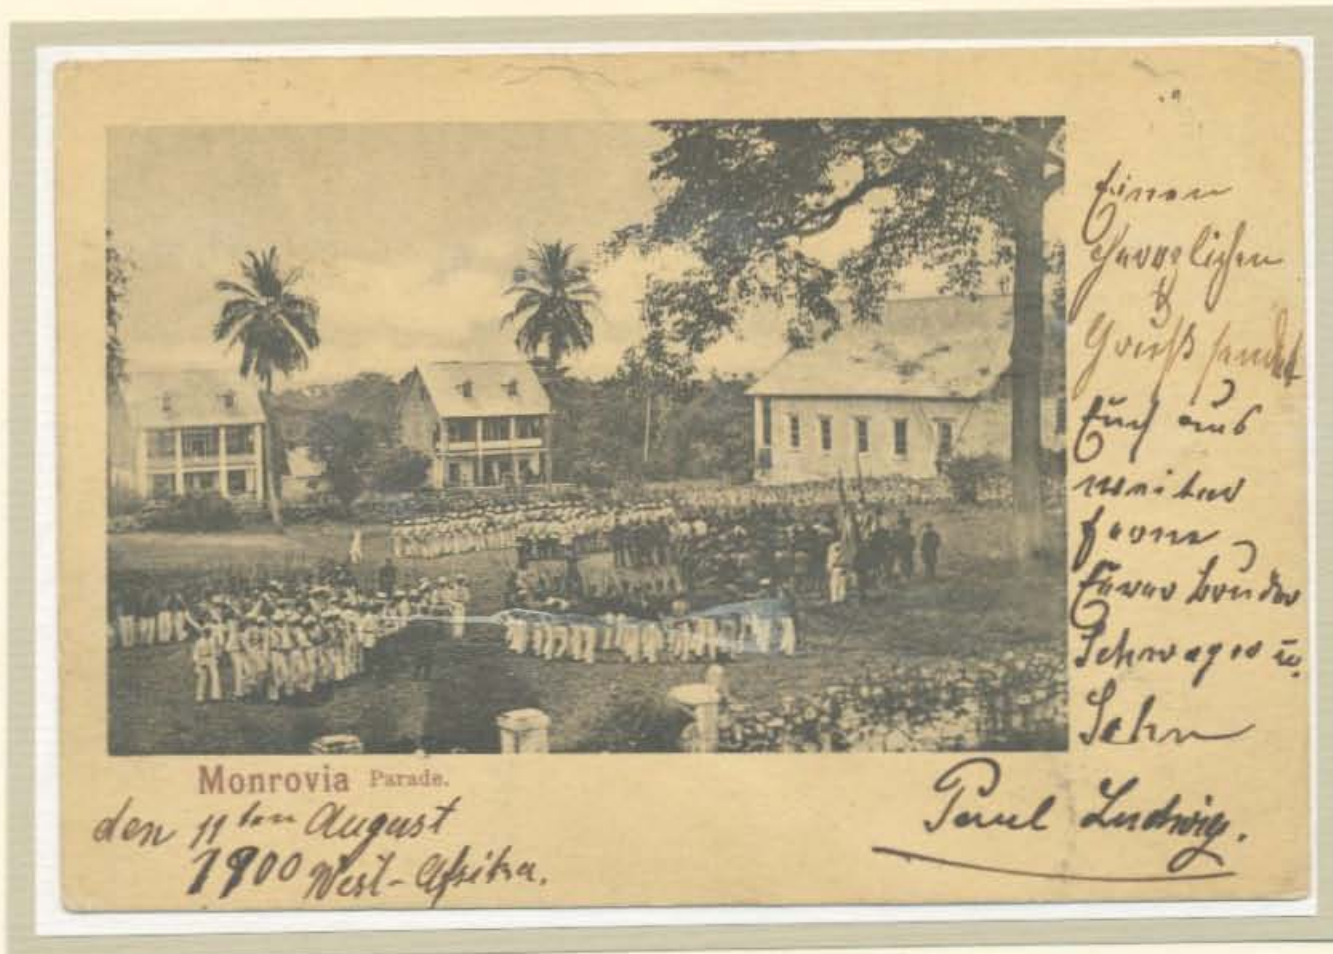 Einen
Herzlichen
Gruß sendet
Euch aus
weiter
ferne
Euer bruder
Schwager u.
Sohn
Paul Ludwig.
Monrovia Parade.
den 11ten August
1900 West-Afrika.